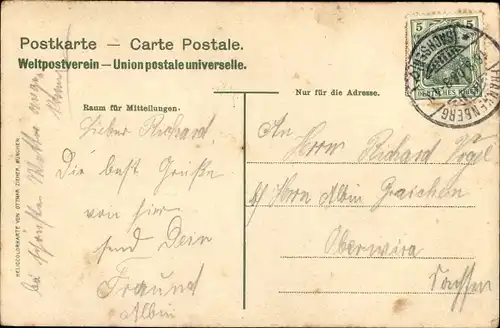 Postkarte — Carte Postale.
Weltpostverein — Union postale universelle.
Nur für die Adresse.
Raum für Mitteilungen.
5 5
DEUTSCHES REICH
Lieber Richard
Die best Grüße
von hier
send Dein
Freund
Albin
bei schönsten Wetter
An
Herrn Richard Vogel
b/ Herrn Albin Graichen
Oberwiera
Sachsen
HELIOCOLORKARTE VON OTTMAR ZIEHER, MÜNCHEN.